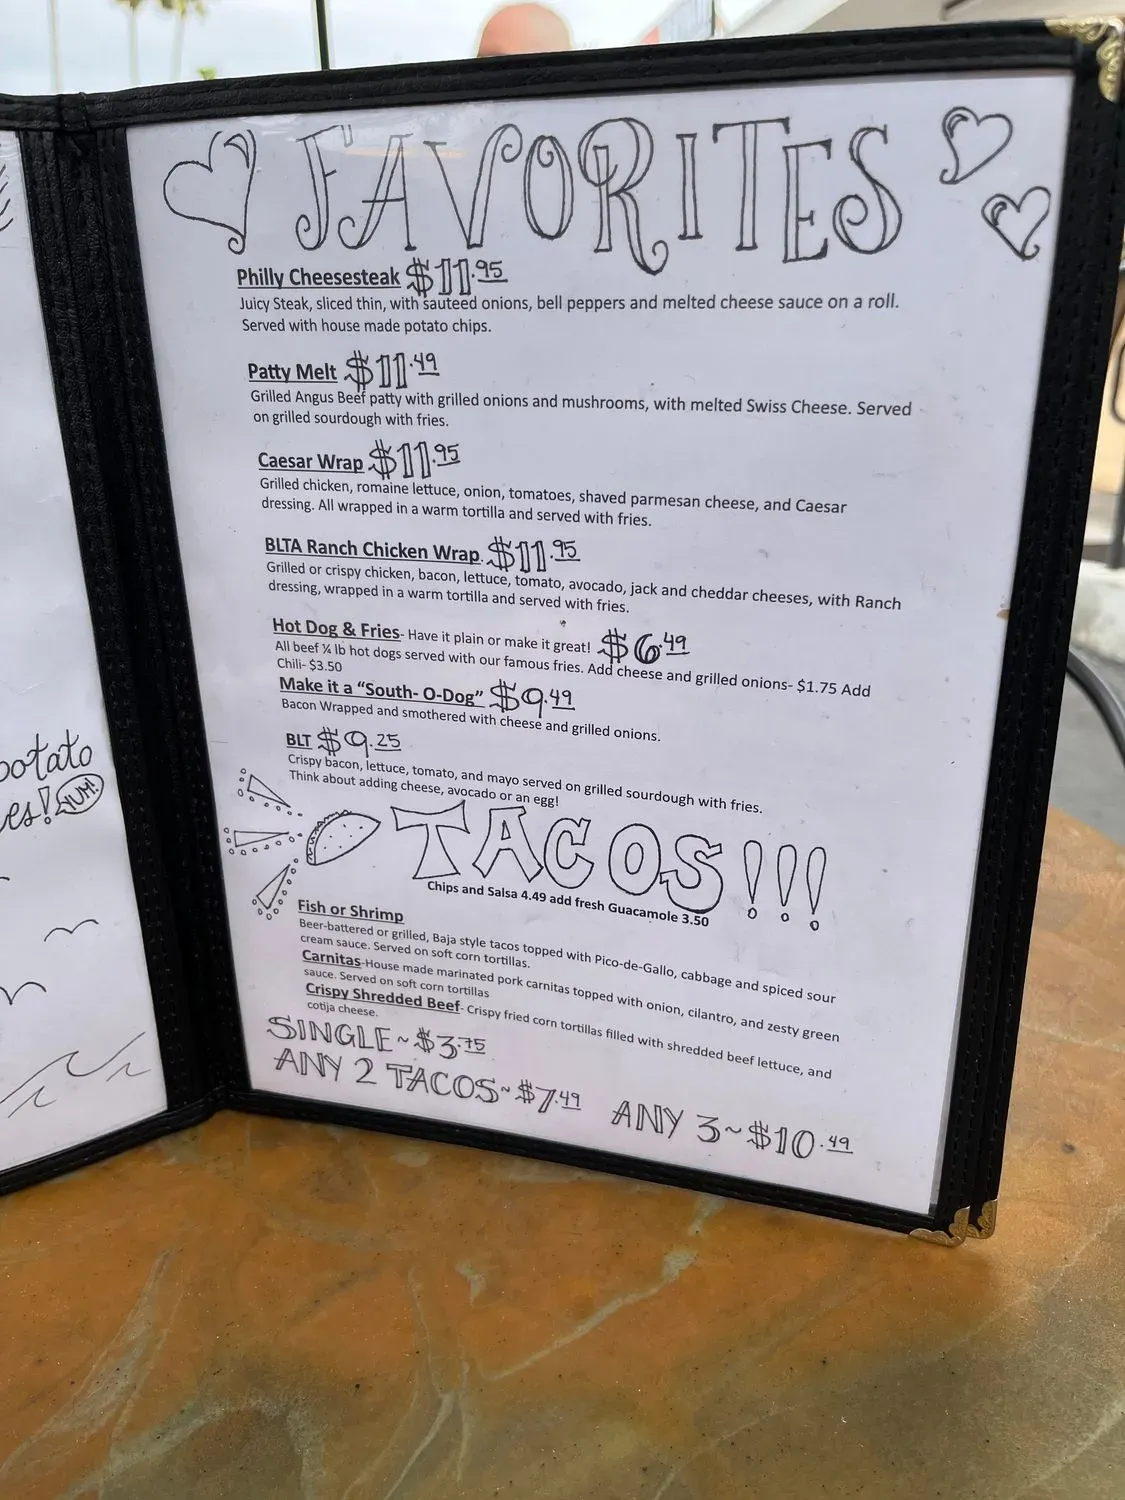 FAVORITES
Philly Cheesesteak $11.95
Juicy Steak, sliced thin, with sauteed onions, bell peppers and melted cheese sauce on a roll.
Served with house made potato chips.
Patty Melt $11.49
Grilled Angus Beef patty with grilled onions and mushrooms, with melted Swiss Cheese. Served
on grilled sourdough with fries.
Caesar Wrap $11.95
Grilled chicken, romaine lettuce, onion, tomatoes, shaved parmesan cheese, and Caesar
dressing. All wrapped in a warm tortilla and served with fries.
BLTA Ranch Chicken Wrap $11.95
Grilled or crispy chicken, bacon, lettuce, tomato, avocado, jack and cheddar cheeses, with Ranch
dressing, wrapped in a warm tortilla and served with fries.
Hot Dog & Fries- Have it plain or make it great! $6.49
All beef ¼ lb hot dogs served with our famous fries. Add cheese and grilled onions- $1.75 Add
Chili- $3.50
Make it a "South- O-Dog" $9.49
Bacon Wrapped and smothered with cheese and grilled onions.
BLT $9.25
Crispy bacon, lettuce, tomato, and mayo served on grilled sourdough with fries.
Think about adding cheese, avocado or an egg!
TACOS!!!
Chips and Salsa 4.49 add fresh Guacamole 3.50
Fish or Shrimp
Beer-battered or grilled, Baja style tacos topped with Pico-de-Gallo, cabbage and spiced sour
cream sauce. Served on soft corn tortillas.
Carnitas-House made marinated pork carnitas topped with onion, cilantro, and zesty green
sauce. Served on soft corn tortillas
Crispy Shredded Beef- Crispy fried corn tortillas filled with shredded beef lettuce, and
cotija cheese.
SINGLE~$3.75
ANY 2 TACOS~$7.49 ANY 3~$10.49
potato
es! YUM!